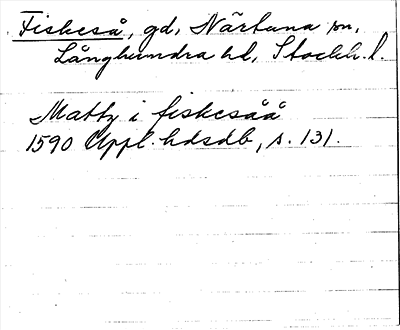 Fiskeså, gd, Närtuna sn,
Långhundra hd, Stockh. l.
Matty i fiskesåå
1590 Uppl. hdsdb, s. 131.